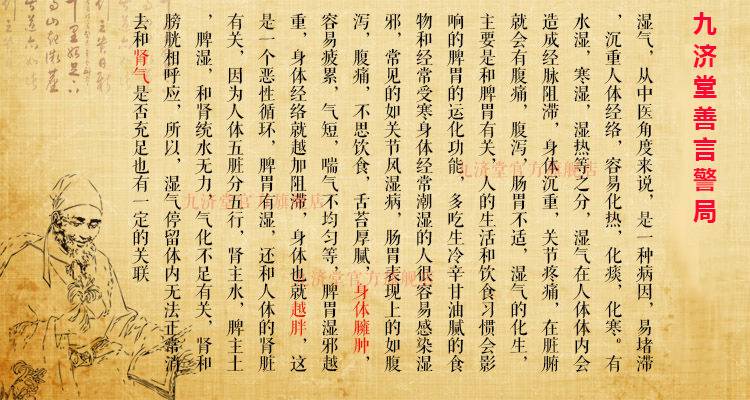 九济堂善言警局
湿气，从中医角度来说，是一种病因，易堵滞
，沉重人体经络，容易化热，化痰，化寒。有
水湿，寒湿，湿热等之分，湿气在人体体内会
造成经脉阻滞，身体沉重，关节疼痛，在脏腑
就会有腹痛，腹泻，肠胃不适，湿气的化生，
主要是和脾胃有关，人的生活和饮食习惯会影
响的脾胃的运化功能，多吃生冷辛甘油腻的食
物和经常受寒身体经常潮湿的人很容易感染湿
邪，常见的如关节风湿病，肠胃表现上的如腹
泻，腹痛，不思饮食，舌苔厚腻，身体臃肿，
容易疲累，气短，喘气不均匀等，脾胃湿邪越
重，身体经络就越加阻滞，身体也就越胖，这
是一个恶性循环，脾胃的湿，还和人体的肾脏
有关，因为人体五脏分五行，肾主水，脾主土
，脾湿，和肾统水无力，气化不足有关，肾和
膀胱相呼应，所以，湿气停留体内无法正常消
去和肾气是否充足也有一定的关联
九济堂官方旗舰店
九济堂官方旗舰店
九济堂官方旗舰店